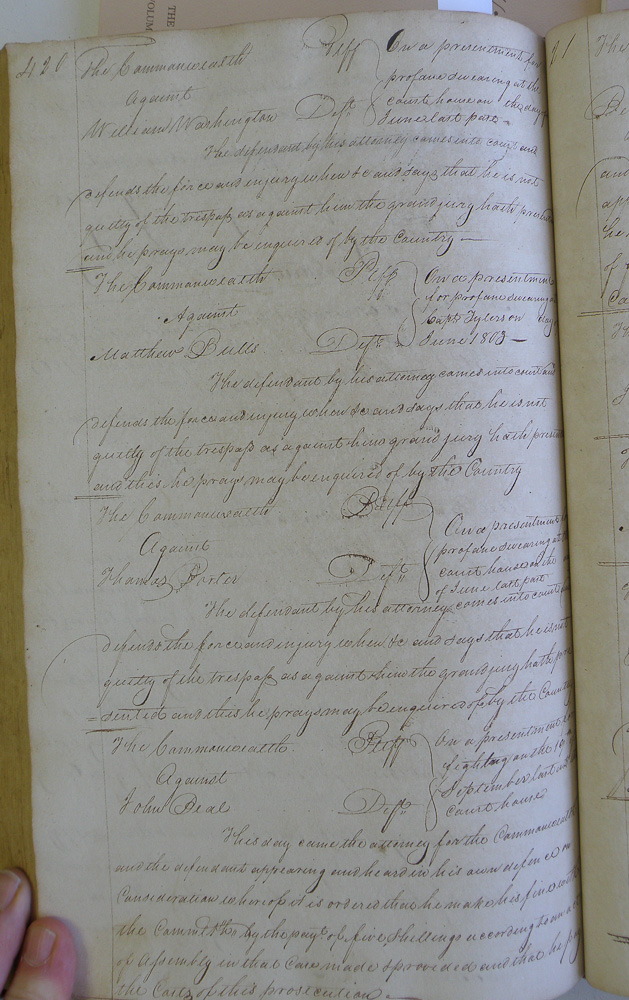 THE
VOLUM
420
The Commonwealth Plff On a presentment for
Against profane swearing at the
court house on the day
William Washington Deft June last past
The defendant by his attorney comes into court and
defends the force and injury when &c and says that he is not
guilty of the trespass as against him the grand jury hath presen
and he prays may be enquired of by the Country
The Commonwealth Plff On a presentment
for profane swearing
Against Capt Tylers on day
Matthew Bulls Deft June 1803
The defendant by his attorney comes into court and
defends the force and injury when &c and says that he is not
guilty of the trespass as against him grand jury hath presen
and this he prays may be enquired of by the Country
The Commonwealth Plff
On a presentment
Against profane swearing at the
court house on the
Thomas Porter Deft of June last past
The defendant by his attorney comes into court
defends the force and injury when &c and says that he is not
guilty of the trespass as against him the grand jury hath pre
=sented and this he prays may be enquired of by the Count
The Commonwealth Plff On a presentment
fighting on the
Against September last
John Beal Deft court house
This day came the attorney for the Commonwealth
and the defendant appearing and heard in his own defence on
Consideration whereof it is ordered that he make his fine with
the Commlth by the paymt of five shillings according to an act
of Assembly in that Case made & provided and that he pay
the Costs of this prosecution